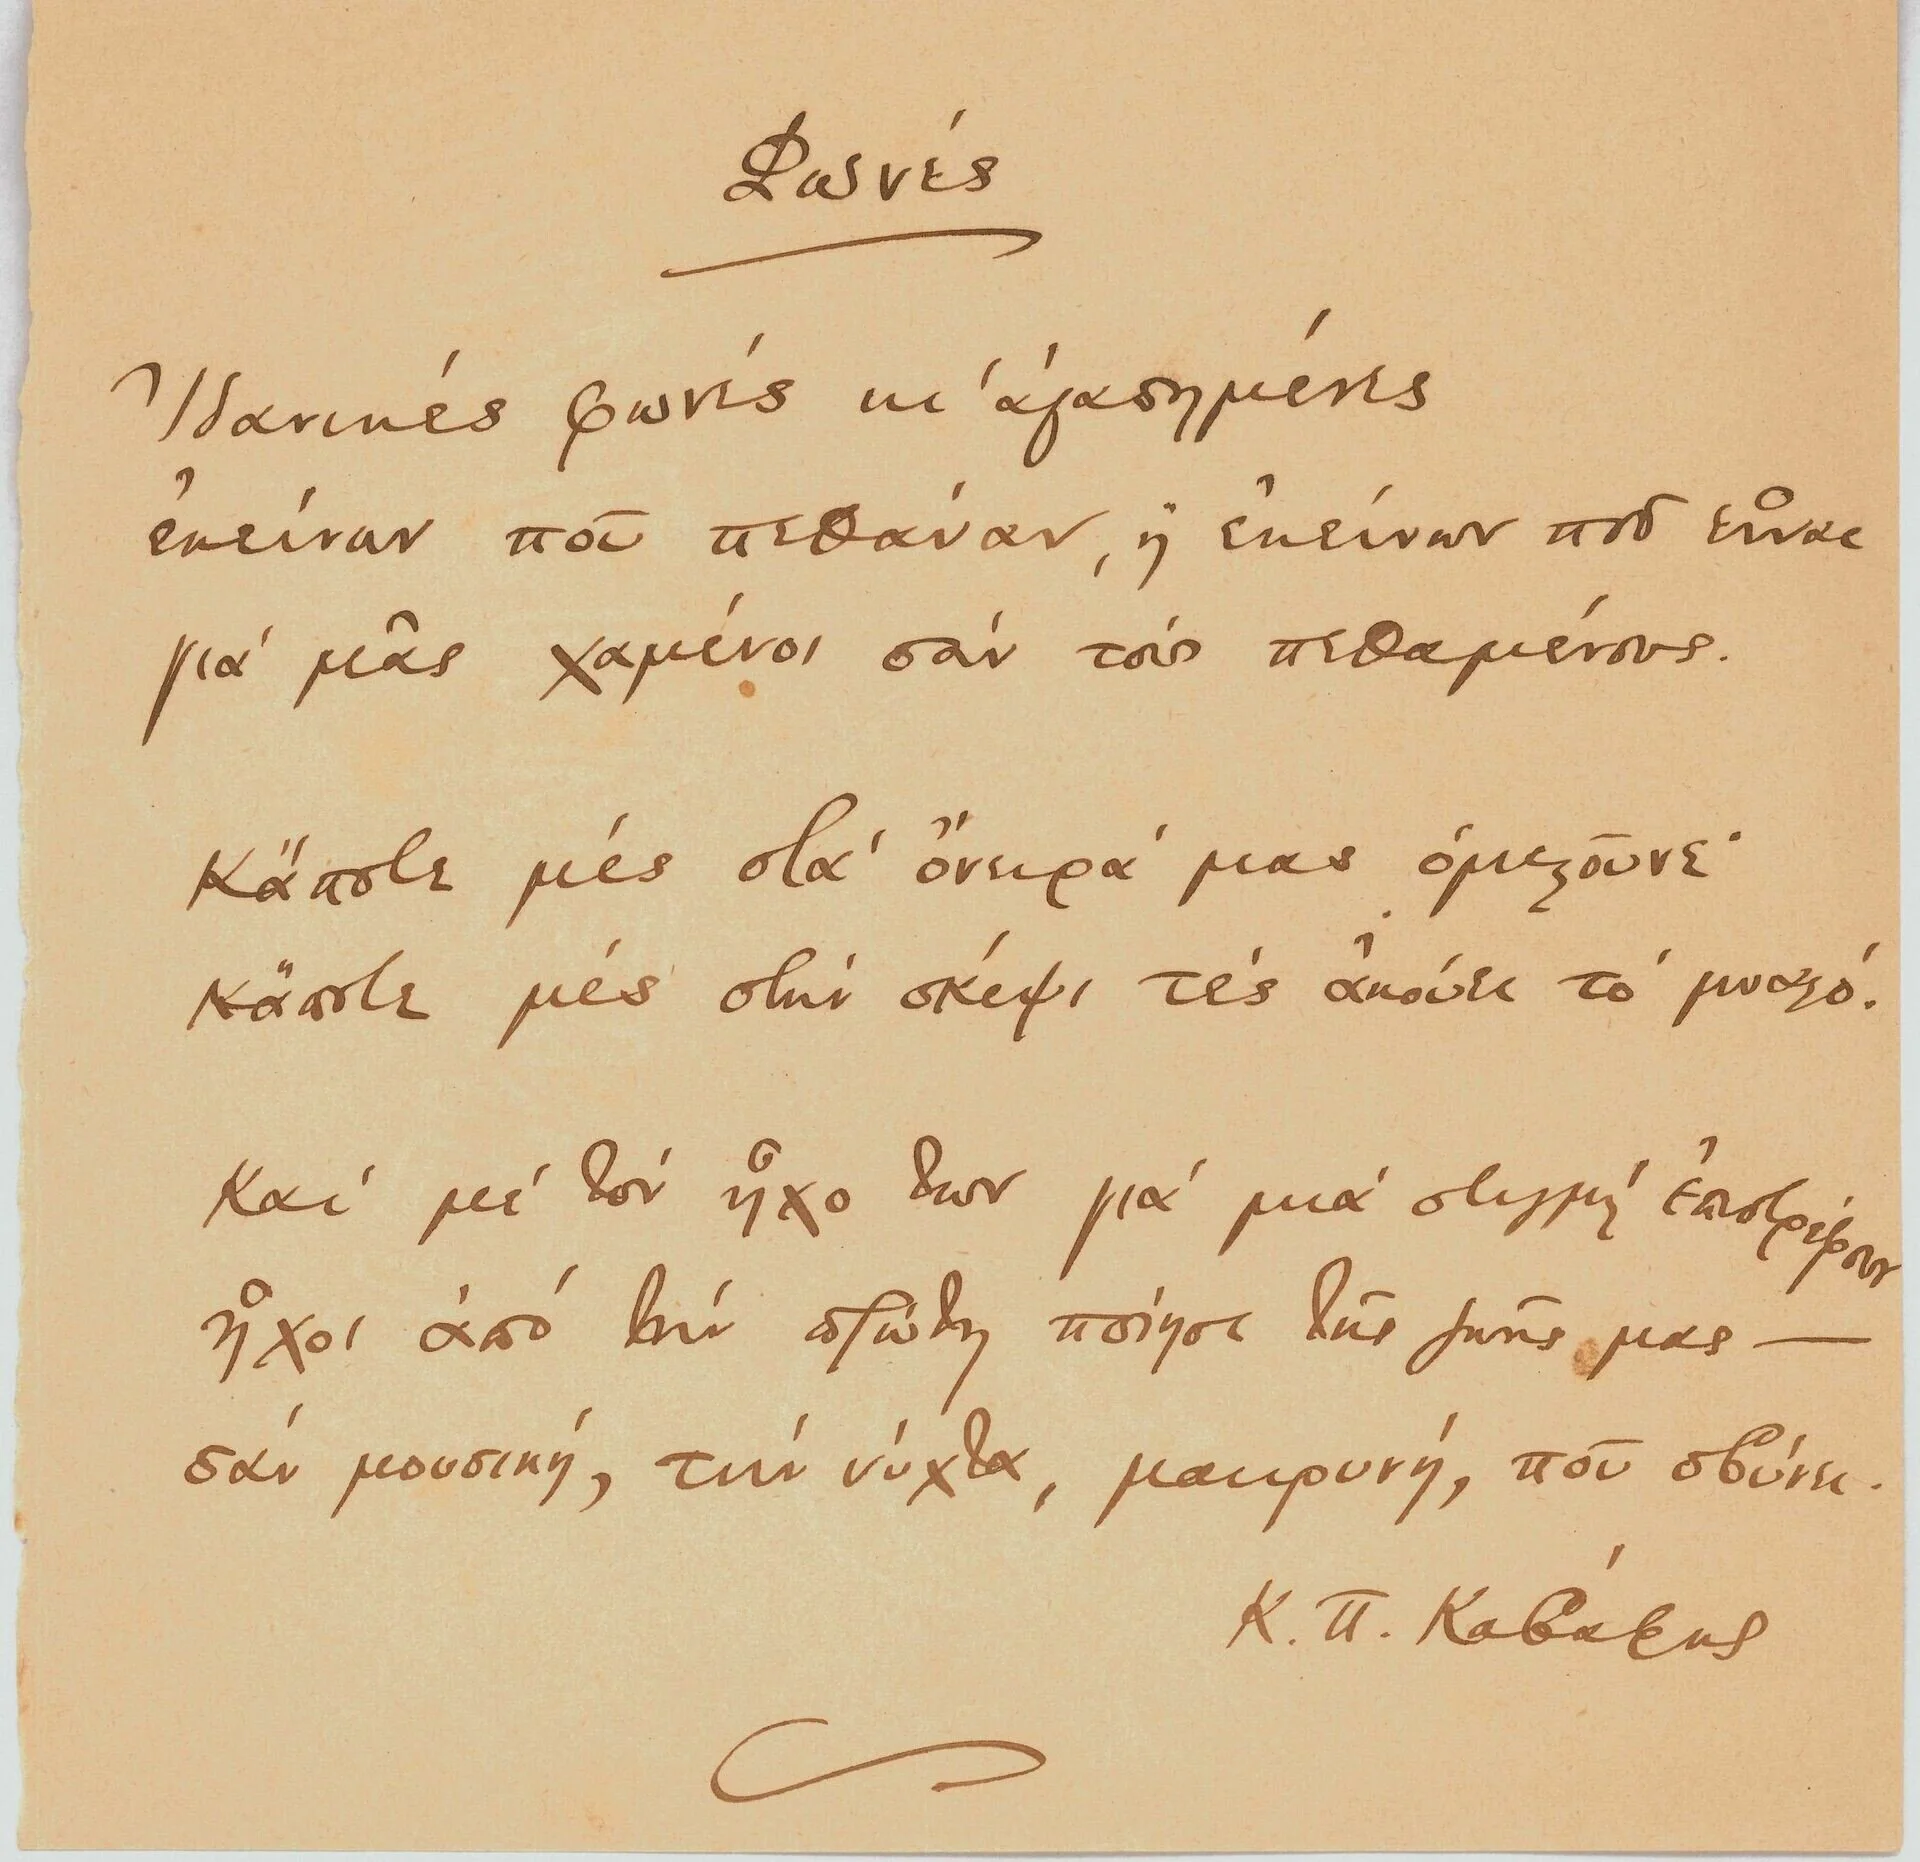 Φωνές
Ἰδανικές φωνές κι ἀγαπημένες
ἐκείνων ποῦ πεθάναν, ἤ ἐκείνων ποῦ εἶναι
γιά μᾶς χαμένοι σάν τούς πεθαμένους.
Κάποτε μές στά ὄνειρά μας ὁμιλοῦνε·
κάποτε μές στήν σκέψι τές ἀκούει τό μυαλό.
Καί μέ τόν ἦχο των γιά μιά στιγμή ἐπιστρέφουν
ἦχοι ἀπό τήν πρώτη ποίησι τῆς ζωῆς μας —
σάν μουσική, τήν νύχτα, μακρυνή, ποῦ σβύνει.
Κ. Π. Καβάφης